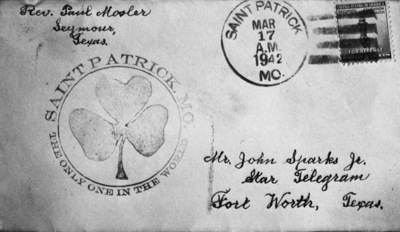 Rev. Paul Mosler
Seymour,
Texas.
SAINT PATRICK
MAR
17
A.M.
1942
MO.
SAINT PATRICK, MO.
THE ONLY ONE IN THE WORLD
Mr. John Sparks Jr.
Star Telegram
Fort Worth, Texas.